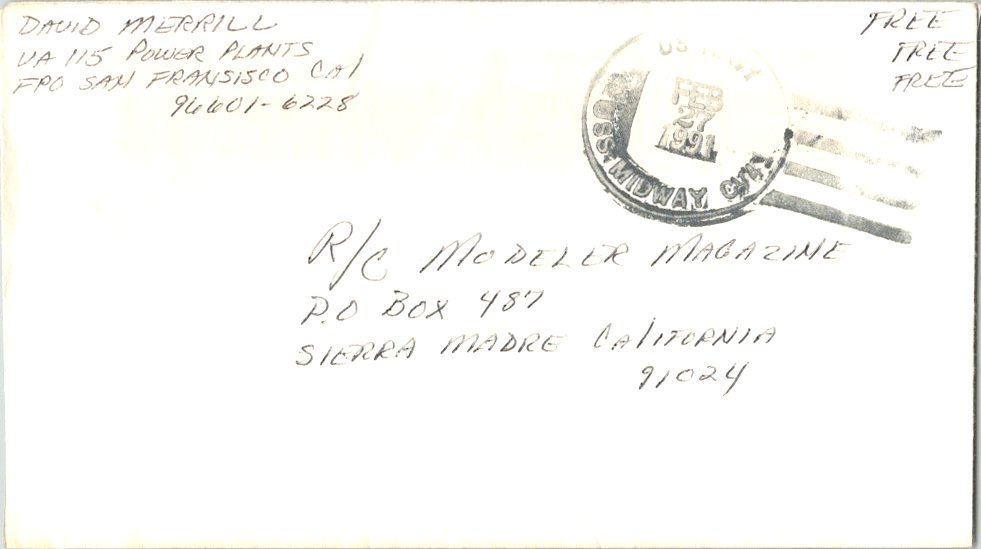 DAVID MERRILL
VA 115 POWER PLANTS
FPO SAN FRANSISCO CAl
96601-6228
FREE
FREE
FREE
US NAVY
FEB
27
1991
USS MIDWAY CV41
R/C MODELER MAGAZINE
P.O BOX 487
SIERRA MADRE CAlIFORNIA
91024